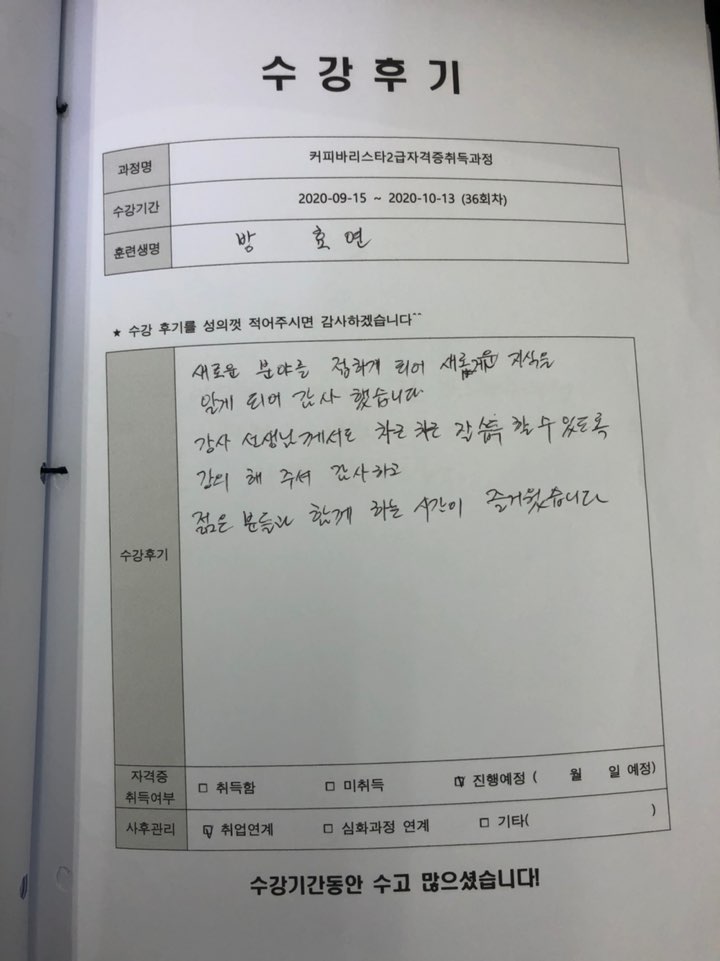 수강후기
과정명 커피바리스타2급자격증취득과정
수강기간 2020-09-15 ~ 2020-10-13 (36회차)
훈련생명 방 효 연
★ 수강 후기를 성의껏 적어주시면 감사하겠습니다^^
새로운 분야를 접하게 되어 새로운 지식을
알게 되어 감사 했습니다
강사 선생님께서도 차근 차근 습득 할 수 있도록
강의 해 주셔 감사하고
젊은 분들과 함께 하는 시간이 즐거웠습니다
수강후기
자격증
취득여부 □ 취득함 □ 미취득 ☑ 진행예정 ( 월 일 예정)
사후관리 ☑ 취업연계 □ 심화과정 연계 □ 기타( )
수강기간동안 수고 많으셨습니다!